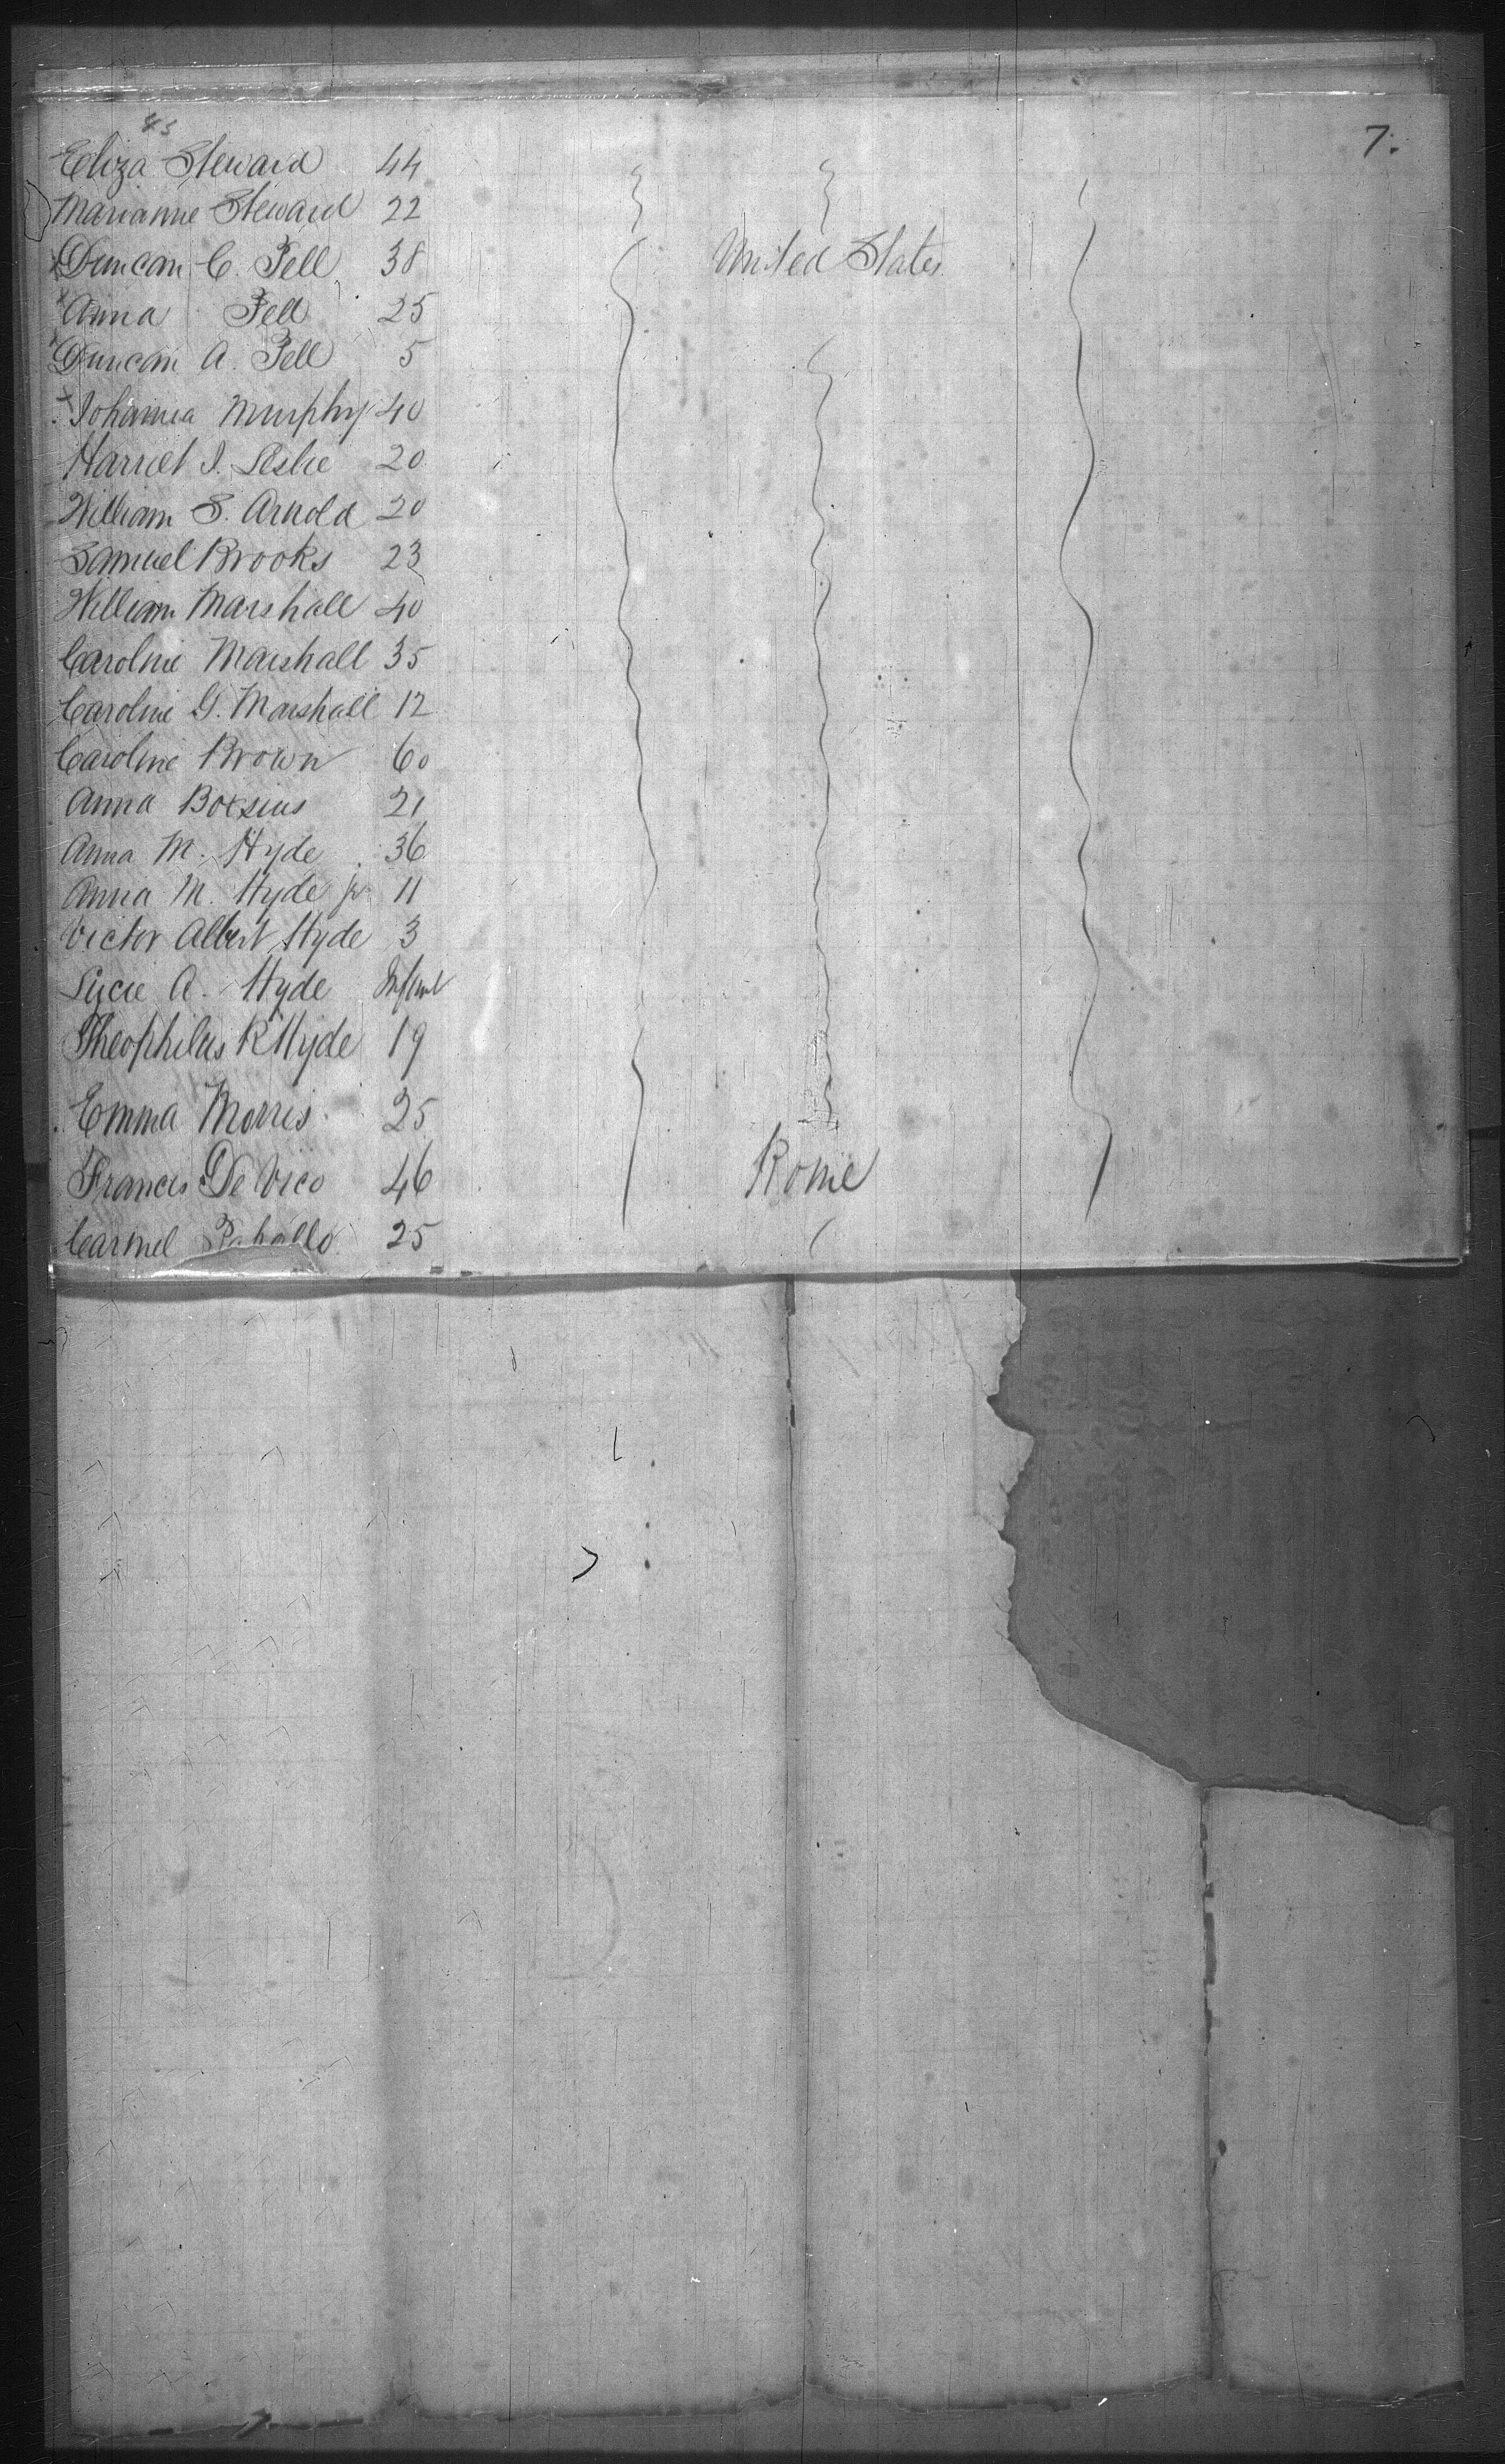 7.
45
Eliza Steward 44
Marianne Steward 22
Duncan C. Pell 38 United States
Anna Pell 25
Duncan A. Pell 5
Johanna Murphy 40
Harriet J. Leslie 20
William S. Arnold 20
Samuel Brooks 23
William Marshall 40
Caroline Marshall 35
Caroline G. Marshall 12
Caroline Brown 60
Anna 21
Anna M. Hyde 36
Anna M. Hyde jr. 11
Victor Albert Hyde 3
Lucie A. Hyde Infant
Theophilus R Hyde 19
Emma Morris 25
Francis De Vico 46 Rome
Carmel 25